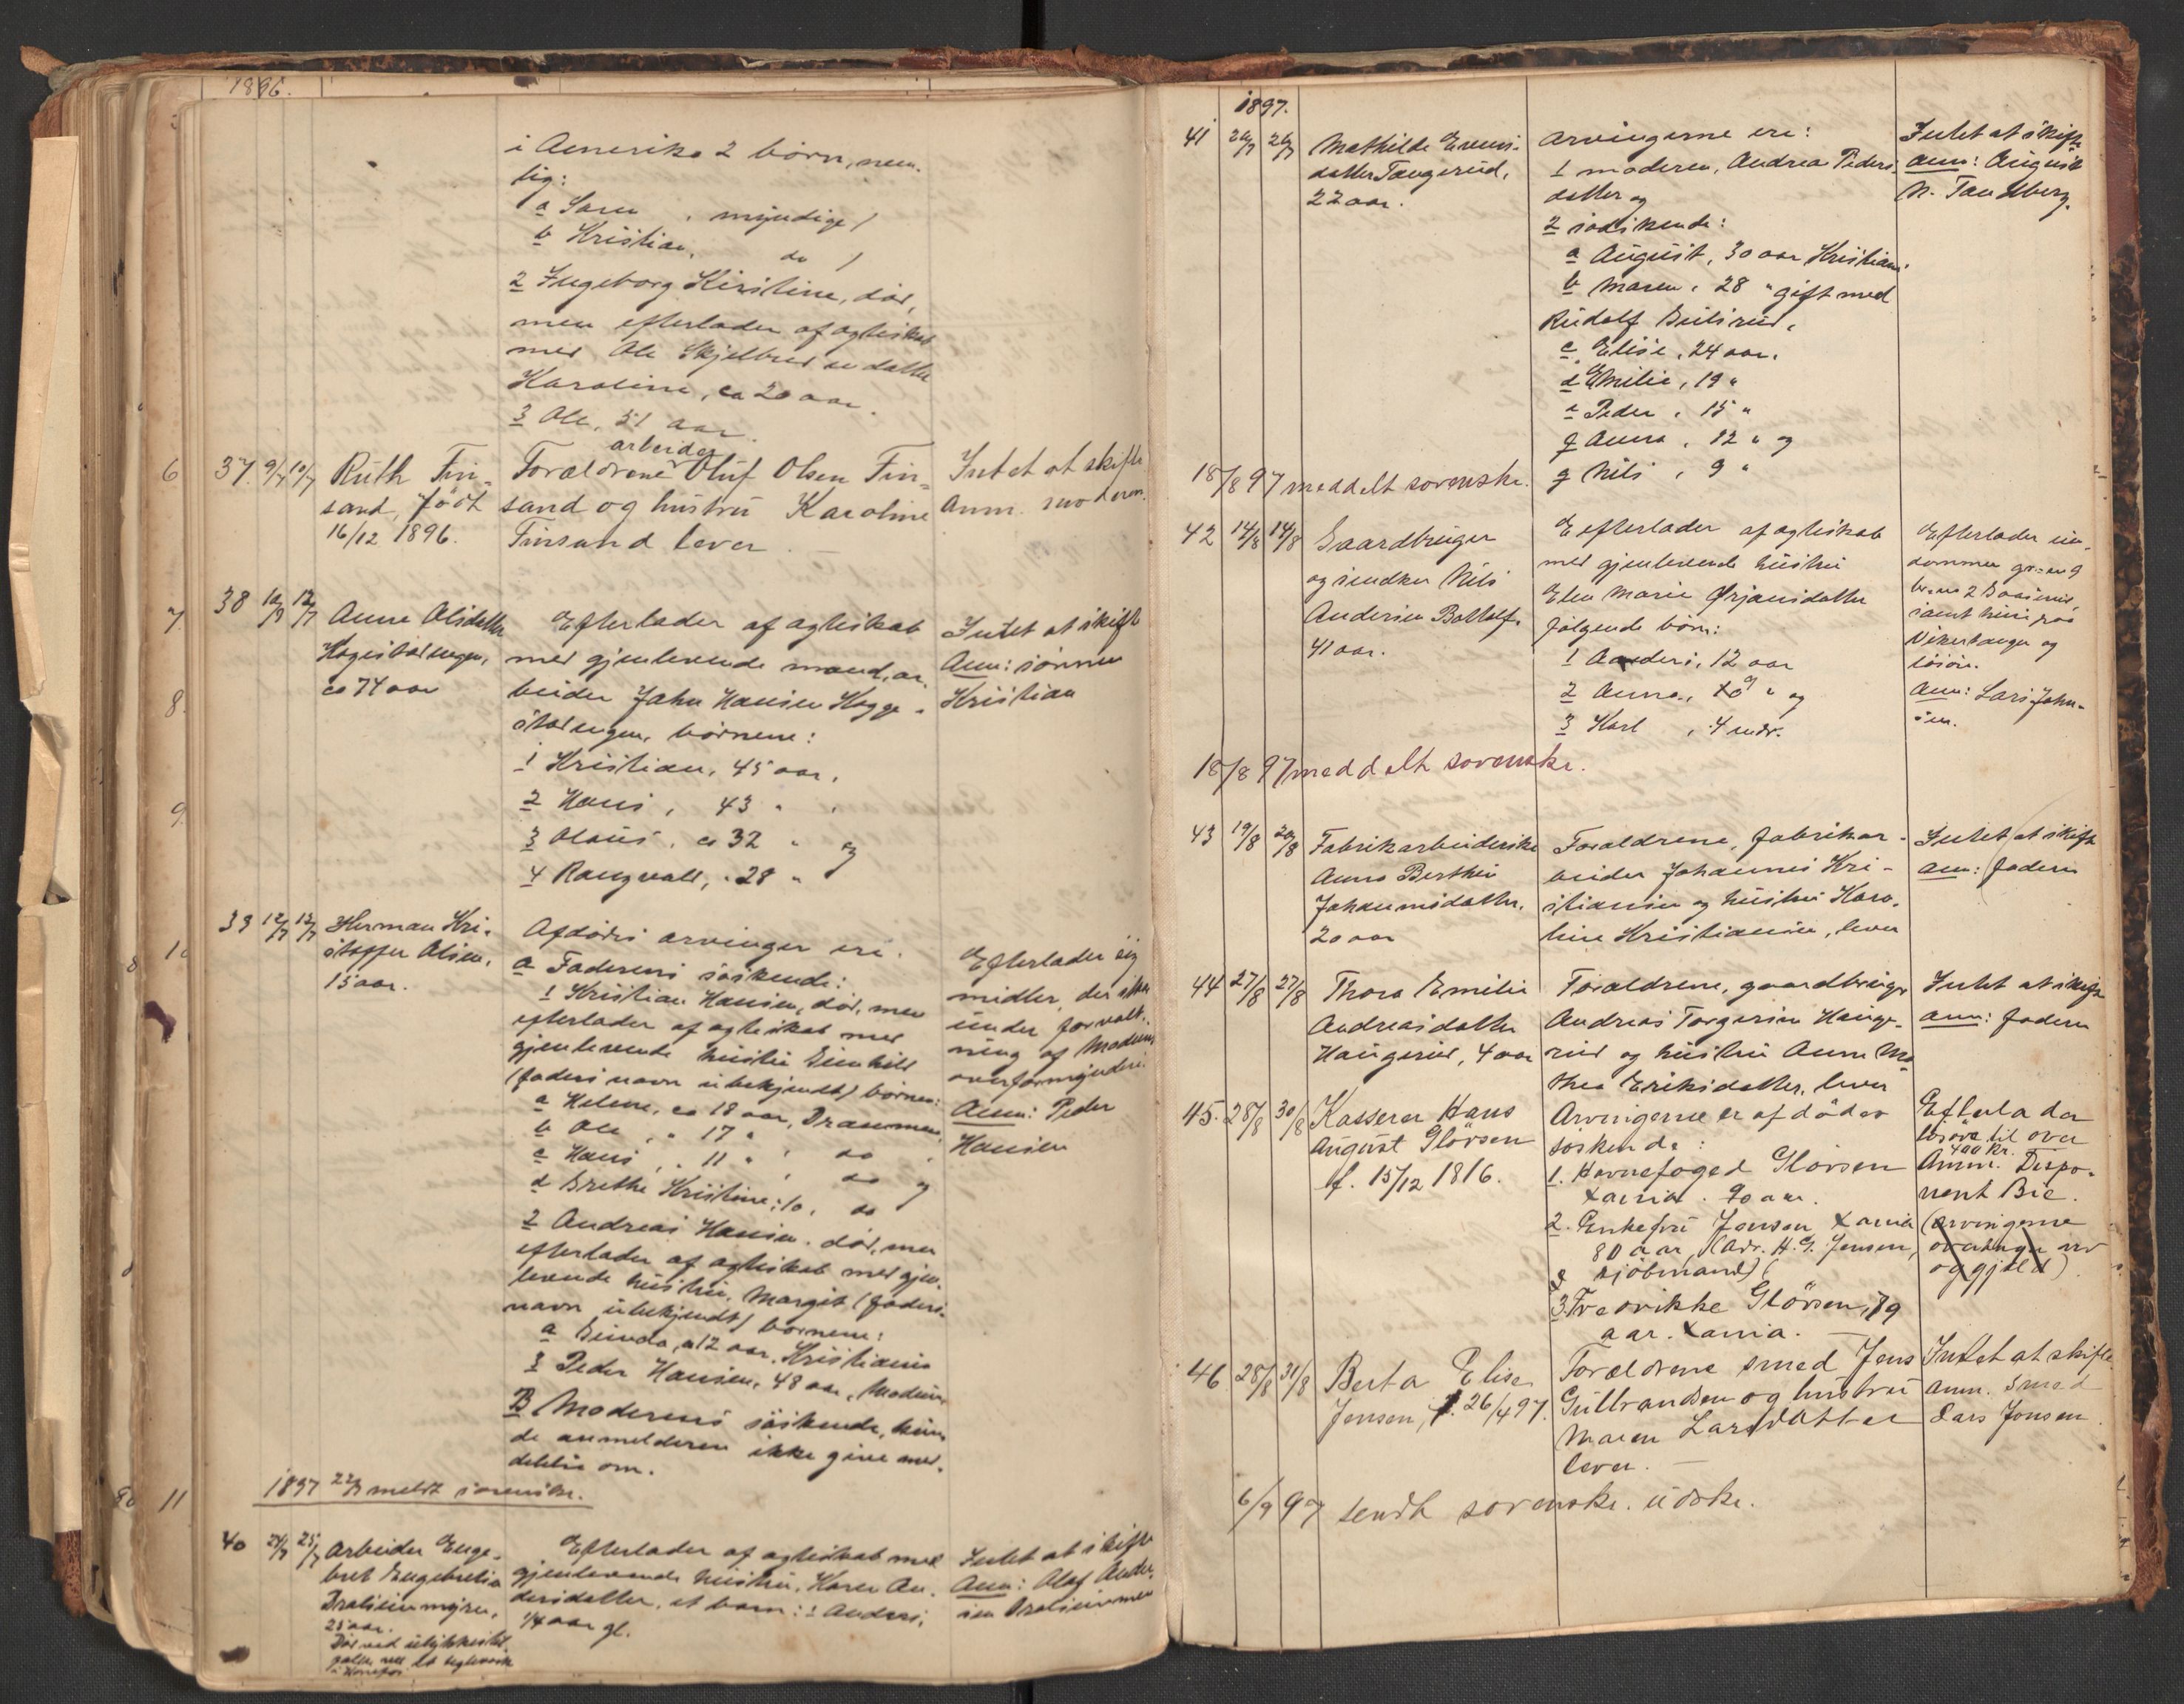 1896.
i Amerika 2 börn, nem-
lig:
a Saren , myndige /
b Kristian, do /
2 Ingeborg Kirstine, död,
men efterlader af ægteskab
med Ole Skjelbred en datter
Karoline, ca 20 aar.
3 Ole, 51 aar.
37. 9/7 10/7 Ruth Fin-
sand, födt
16/12 1896.
arbeider
Forældrene Oluf Olsen Fin-
sand og hustru Karoline
Finsand lever. —
Intet at skifte
Anm. moderen.
38 10/7 12/7 Anne Olsdatter
ca 74 aar
Efterlader af ægteskab
med gjenlevende mand, ar-
beider Johan Hansen Hagge-
börnene:
1 Kristian, 45 aar,
2 Hans, 43 " ,
3 Olaus, ca 32 " og
4 Rangvald, " 28 "
Intet at skifte
Anm: sönnen
Kristian
39 12/7 12/7 Herman Kri-
stoffer Olsen,
15 aar.
Afdödes arvinger ere.
a Faderens söskende:
1 Kristian Hansen, död, men
efterlader af ægteskab med
gjenlevende hustru Gunhild
(faders navn ubekjendt) börnene:
a Helene, ca 18 aar, Drammen,
b Ole , " 17 " , do ,
c Hans , " 11 " , do og
d Brethe Kristine, " 10, do
2 Andreas Hansen, död, men
efterlader af ægteskab med gjen-
levende hustru, Margit (faders-
navn ubekjendt) börnene:
a Gunda, ca 12 aar, Kristiania
3 Peder Hansen, 48 aar, Modum
B Moderens söskende, kun-
de anmelderen ikke give med-
delelse om.
Efterlader sig
midler, der staar
under forvalt-
ning af Modums
overformynderi.
Anm: Peder
Hansen
1897 22/7 meldt sorenskr.
40 24/7 25/7 Arbeider Enge-
bret Engebretsen
25 aar.
Död ved ulykkestil-
fælde ved et teglværk
i Hönefos
Efterlader af ægteskab med
gjenlevende hustru, Karen An-
dersdatter, et barn: 1 Anders,
1/4 aar gl.
Intet at skifte
Anm: Olaf Ander-
1897.
41 26/7 26/7 Mathilde Evens-
datter Tangerud,
22 aar.
Arvingerne ere:
1 moderen, Andrea Peders-
datter og
2 södskende:
a August, 30 aar Kristiania
b Maren, 28 " gift med
Rudolf Gulsrud,
c Elise, 24 aar,
d Emilie, 19 "
e Peder , 15 "
f Anna , 12 " og
g Nils , 9 "
Intet at skifte
Anm: August
N. Tandberg.
18/8 97 meddelt sorenskr.
42 14/8 14/8 Gaardbruger
og snedker Nils
Andersen Bottolfs
41 aar.
Efterlader af ægteskab
med gjenlevende hustru
Elen Marie Ørjansdatter
fölgende börn:
1 Anders, 12 aar
2 Anna, 9 " og
3 Karl , 4 mdr.
Efterlader eien-
dommen gr: no 9
br: no 2
samt huus paa
Vikerhaugen og
lösöre.
Anm: Lars John-
sen.
18/8 97 meddelt sorenskr.
43 19/8 20/8 Fabrikarbeiderske
Anna Berthea
Johannesdatter,
20 aar
Forældrene, fabrikar-
beider Johannes Kri-
stiansen og hustru Karo-
line Kristiansen, lever
Intet at skifte
Anm: faderen
44 27/8 27/8 Thora Emilie
Andreasdatter
Haugerud, 4 aar
Forældrene, gaardbruger
Andreas Torgersen Hauge-
rud og hustru Anne Ma-
thea Eriksdatter, lever
Intet at skifte
Anm: faderen
45. 28/8 30/8 Kasserer Hans
August Glörsen
f. 15/12 1816.
Arvingerne er afdödes
söskende:
1. Havnefoged Glörsen
Xania. 90 aar.
2. Enkefru Jensen Xania
80 aar, (Adr. H. G. Jensen,
kjöbmand)
3. Fredrikke Glörsen, 79
aar. Xania. —
Efterlader
lösöre til over
400 kr.
Anm. Dispo-
nent Bie.
(arvingerne
overtager arv
og gjæld)
46 28/8 31/8 Berta Elise
Jensen, f. 26/4 97.
Forældrene smed Jens
Gulbrandsen og hustru
Maren Larsdatter
lever. —
Intet at skifte
Anm. smed
Lars Jonsen.
6/9 97 sendt sorenskr. udskr.
6
7.
8.
9.
10
11